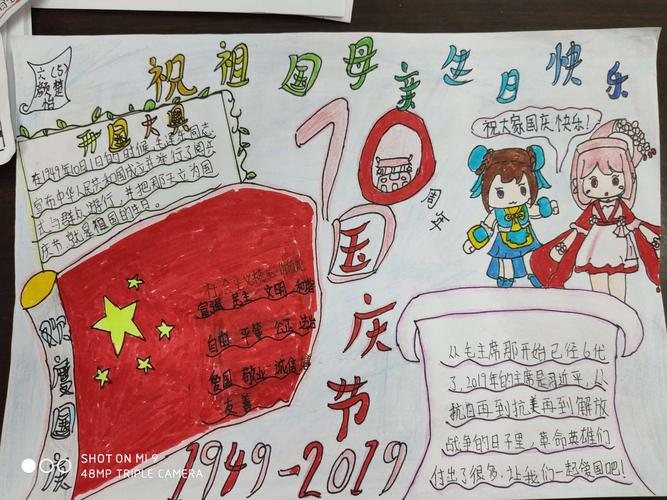 祝祖国母亲生日快乐
六(5)
开国大典
在1949年10月1日的时候,毛泽东同志
宣布中华人民共和国成立并举行了阅兵
庆节,就是祖国的生日。
70
周年
国庆节
祝大家国庆快乐!
社会主义核心价值观
富强 民主 文明 和谐
自由 平等 公正 法治
爱国 敬业 诚信
友善
欢度国庆
1949-2019
从毛主席那开始已经6代
了,2019年的主席是习近平,从
抗日再到抗美再到解放
战争的日子里,革命英雄们
付出了很多,让我们一起爱国吧!
SHOT ON MI 9
48MP TRIPLE CAMERA